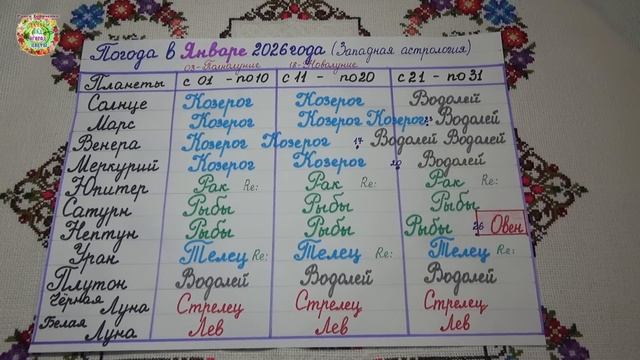 Погода в Январе 2026 года (Западная астрология)
03-Полнолуние 18-Новолуние
Планеты с 01 - по10 с 11 - по20 с 21 - по31
Солнце Козерог Козерог Водолей
Марс Козерог Козерог Козерог 23 Водолей
Венера Козерог Козерог 17 Водолей Водолей
Меркурий Козерог Козерог 20 Водолей
Юпитер Рак Re: Рак Re: Рак Re:
Сатурн Рыбы Рыбы Рыбы
Нептун Рыбы Рыбы Рыбы 26 Овен
Уран Телец Re: Телец Re: Телец Re:
Плутон Водолей Водолей Водолей
Чёрная Луна Стрелец Стрелец Стрелец
Белая Луна Лев Лев Лев